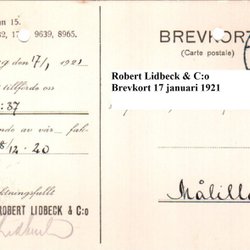 an 15.
32, 17 , 9639, 8965.
g den 7/1 1921
tillförda om
: 37
nde av vår fak-
8/12 - 20
ktningsfullt
ROBERT LIDBECK & C:o
BREVKORT
(Carte postale)
Robert Lidbeck & C:o
Brevkort 17 januari 1921
Målilla